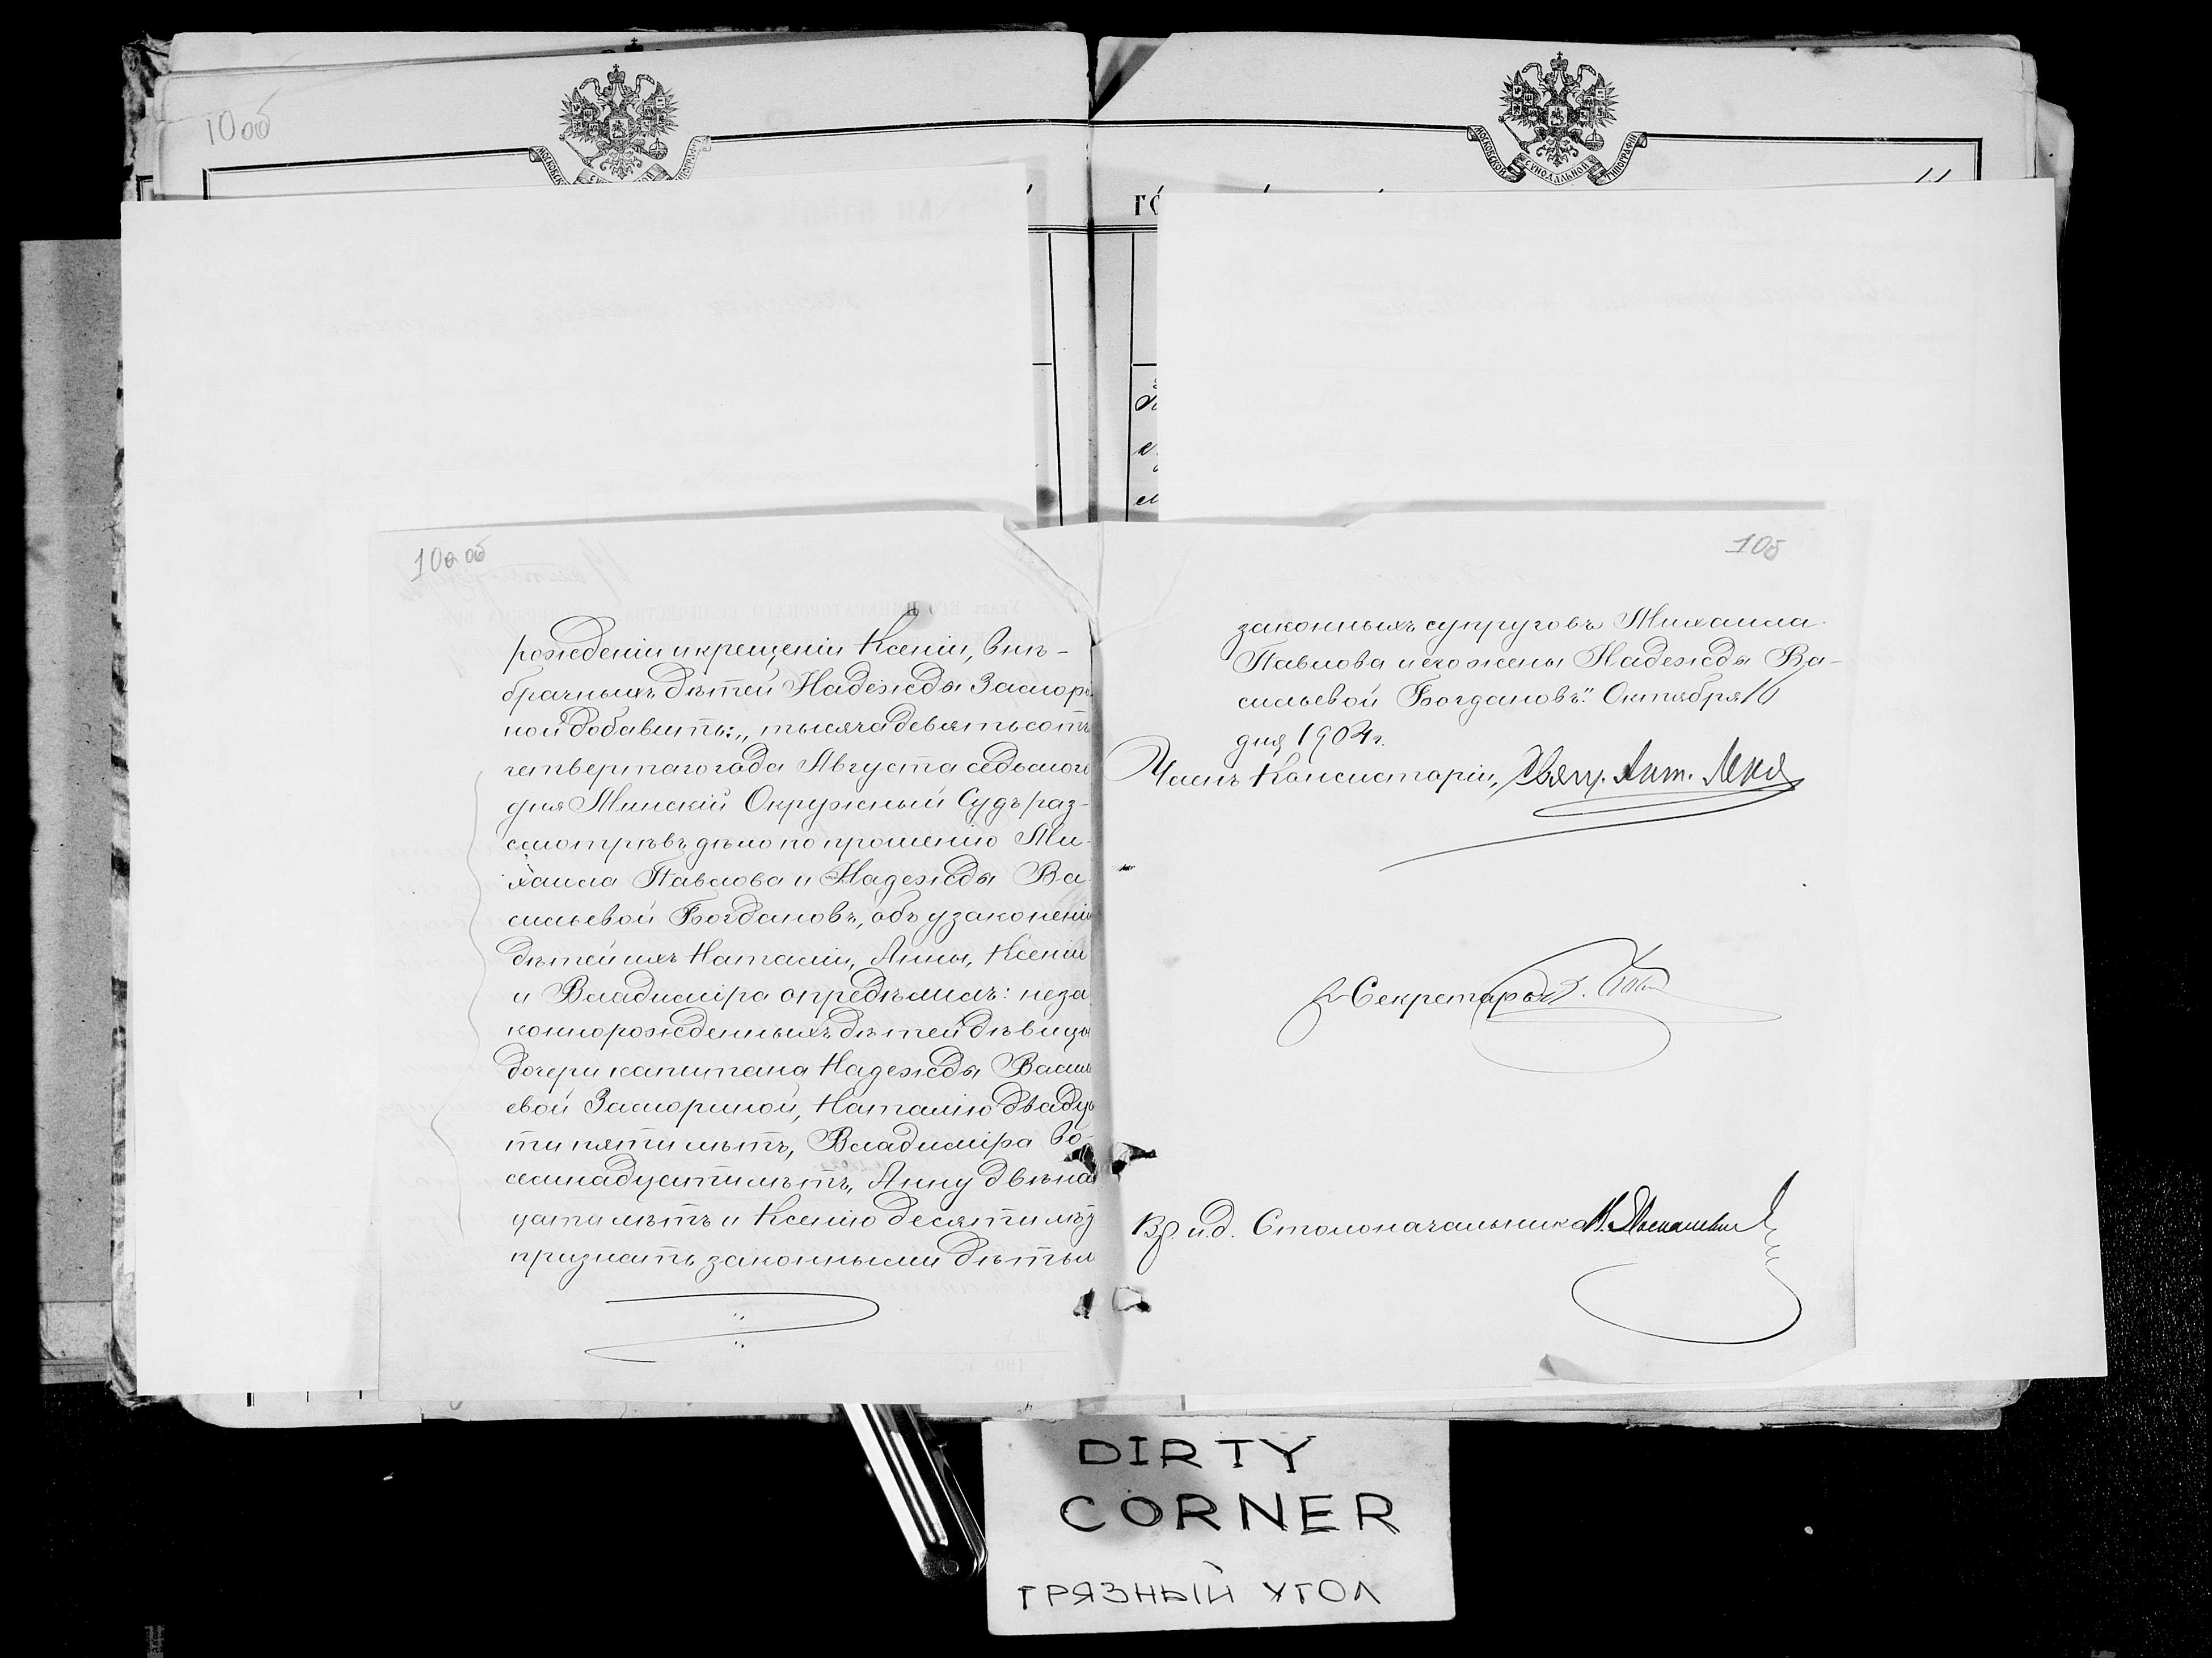 10об
МОСКОВСКОЙ СУНОДАЛЬНОЙ ТИПОГРАФІИ
МОСКОВСКОЙ СУНОДАЛЬНОЙ ТИПОГРАФІИ
11
ГО
10а об
рожденіи и крещеніи Ксеніи, внѣ-
брачныхъ дѣтей Надежды Заспори
ной добавить: „тысяча девятьсотъ
четвертаго года Августа седьмого
дня Минскій Окружный Судъ раз-
смотрѣвъ дѣло по прошенію Ми-
хаила Павлова и Надежды Ва-
сильевой Богдановъ, объ узаконеніи
дѣтей ихъ Наталіи, Анны, Ксеніи
и Владиміра опредѣлилъ: неза
коннорожденныхъ дѣтей дѣвицы
дочери капитана Надежды Василь
евой Заспориной, Наталію двадца
ти пяти лѣтъ, Владиміра во-
семнадцати лѣтъ, Анну двѣнад
цати лѣтъ и Ксенію десяти лѣтъ
признать законными дѣтьми
10б
законныхъ супруговъ Михаила
Павлова и его жены Надежды Ва-
сильевой Богдановъ." Октября 16
дня 1904 г.
Членъ Консисторіи, Свящ. Ант.
Секретарь
Вр. и.д. Столоначальника
DIRTY
CORNER
ГРЯЗНЫЙ УГОЛ